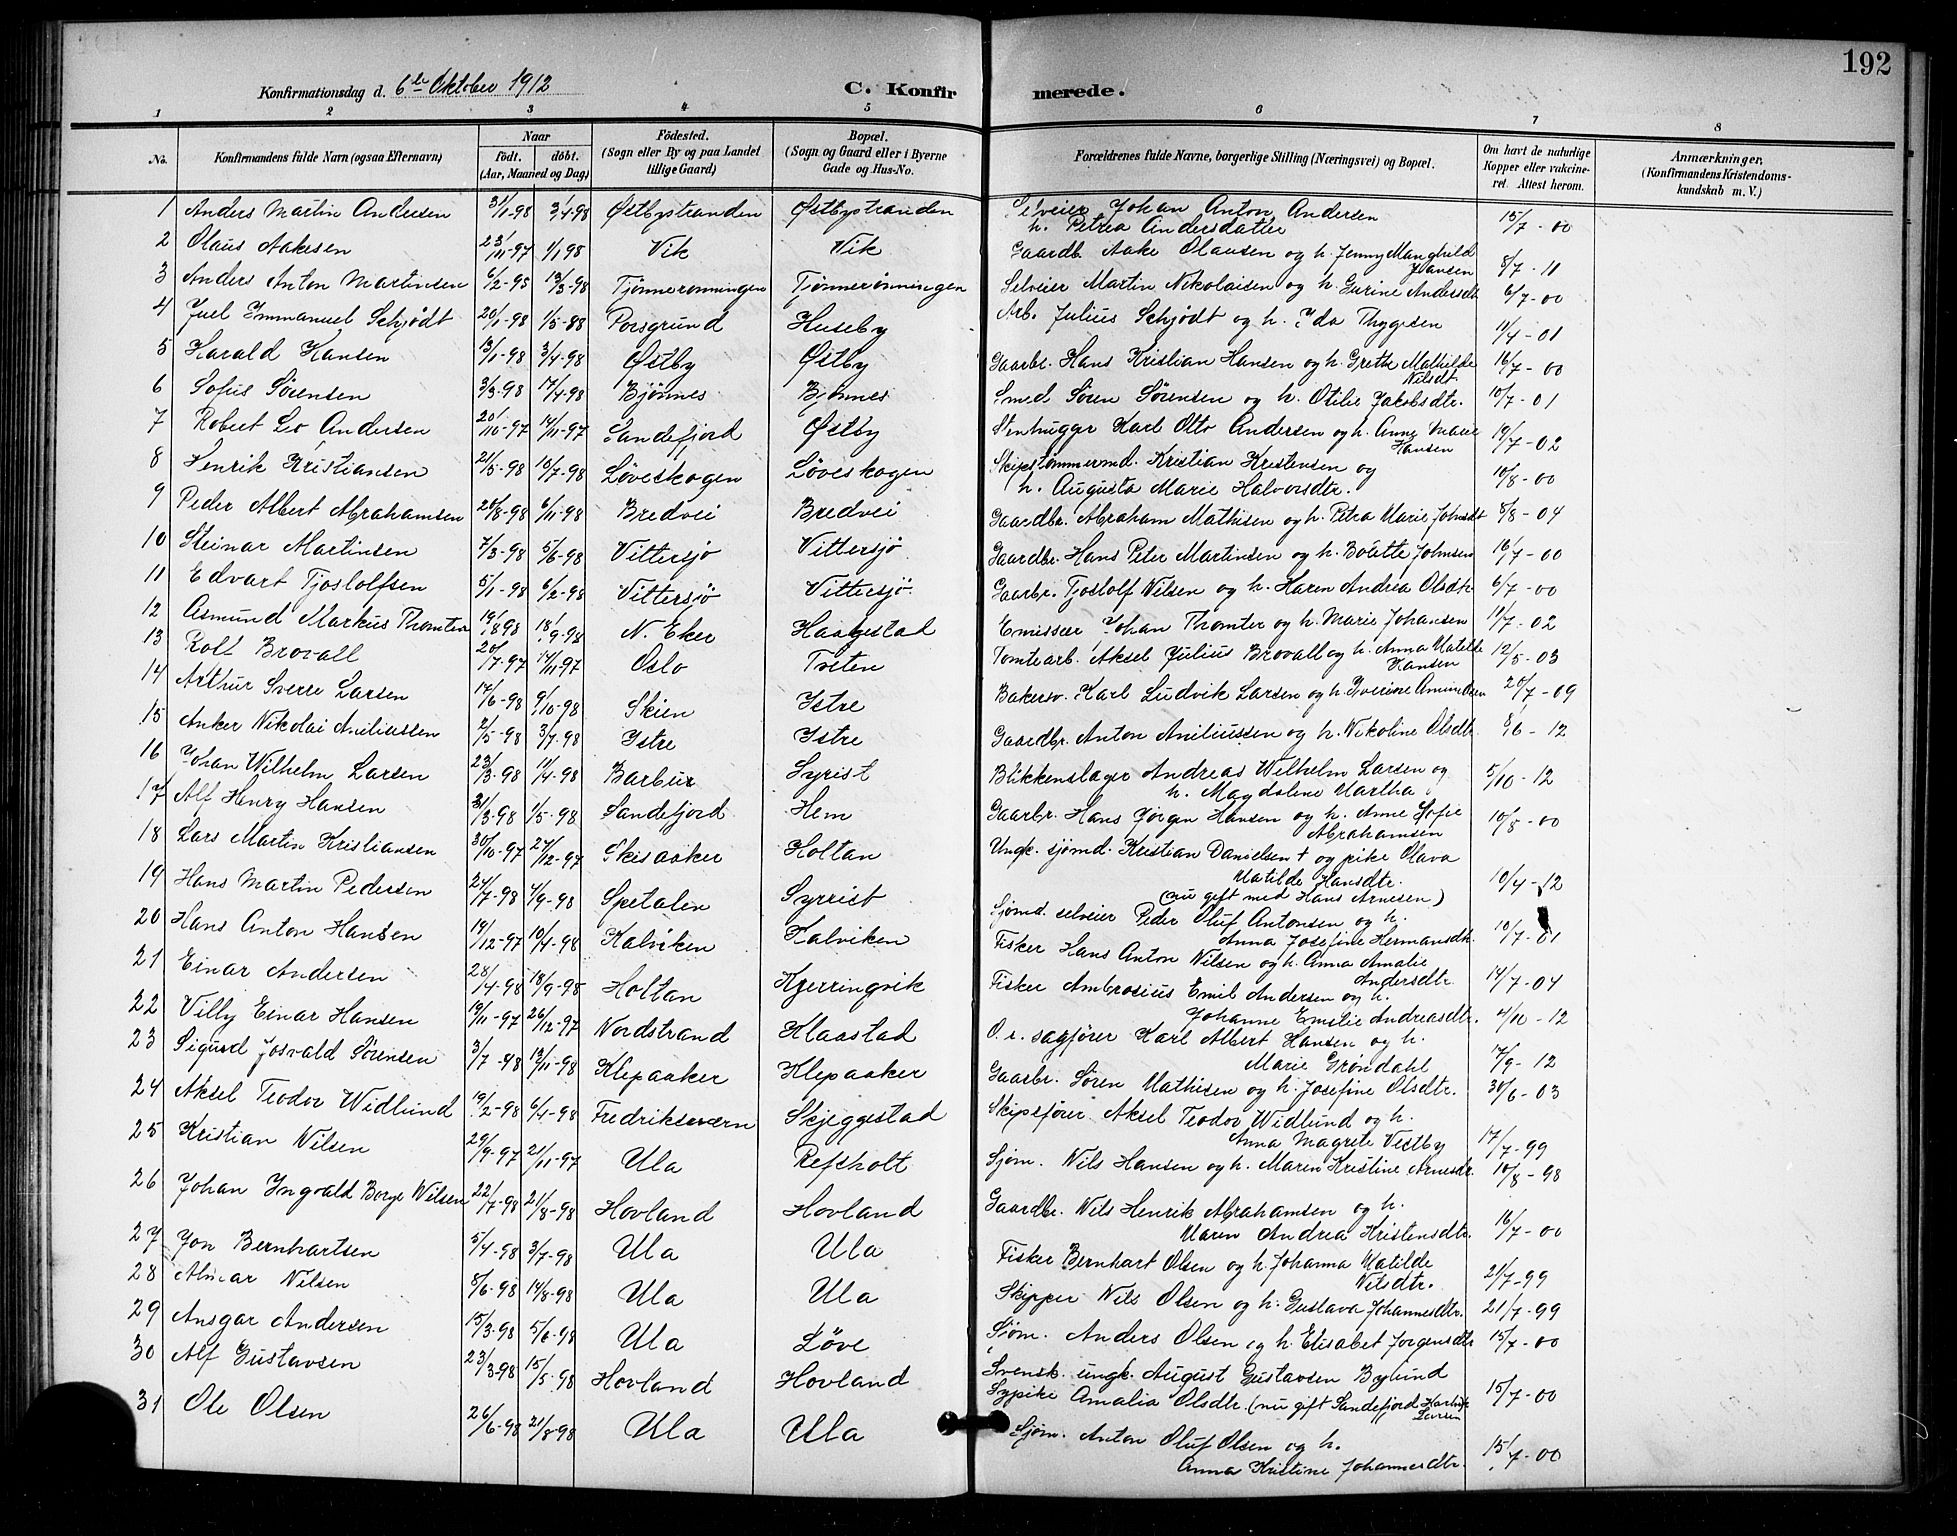 192
Konfirmationsdag d. 6te Oktober 1912 C. Konfirmerede.
1 2 3 4 5 6 7 8
No. Konfirmandens fulde Navn (ogsaa Efternavn) Naar födt. döbt. (Aar, Maaned og Dag) Födested. (Sogn eller By og paa Landet tillige Gaard) Bopæl. (Sogn og Gaard eller i Byerne Gade og Hus-No. Forældrenes fulde Navne, borgerlige Stilling (Næringsvei) og Bopæl. Om havt de naturlige Kopper eller vakcineret. Attest herom. Anmærkninger, (Konfirmandens Kristendomskundskab m. V.)
1 Anders Martin Andersen 31/1-98 3/4-98 Østbystranden Østbystranden Selveier Johan Anton Andersen 15/7-00
h. Petrea Andersdatter
2 Olaus Aakesen 23/11-97 1/1 98 Vik Vik Gaardb. Aake Olausen og h. Jenny Manghild Hansen 8/7-11
3 Anders Anton Martinsen 6/2-98 13/3-98 Tjønnerønningen Tjønnerønningen Selveier Martin Nikolaisen og h. Gurine Andersdt 6/7-00
4 Juel Immanuel Schjødt 20/1-98 1/5-88 Porsgrund Huseby Arb. Julius Schjødt og h. Ida Thygesen 11/4-01
5 Harald Hansen 13/1-98 3/4-98 Østby Østby Gaarbr. Hans Kristian Hansen og h. Grethe Mathilde Nilsdt. 16/7-00
6 Sofus Sørensen 3/3-98 17/4-98 Bjønnes Bjønnes Smed Søren Sørensen og h. Otilie Jakobsdtr. 10/7-01
7 Robert Leo Andersen 20/10-97 14/11-97 Sandefjord Østby Stenhugger Karl Otto Andersen og h. Anne Marie Hansen 19/7-02
8 Henrik Kristiansen 21/5-98 10/7-98 Løveskogen Løveskogen Skipstømmermd. Kristian Kristensen og 10/8-00
h. Augusta Marie Halvorsdtr.
9 Peder Albert Abrahamsen 20/8-98 6/11-98 Bredvei Bredvei Gaardbr. Abraham Mathisen og h. Petra Marie Johnsdt 8/8-04
10 Steinar Martinsen 7/3-98 5/6-98 Vittersjø Vittersjø Gaardbr. Hans Peter Martinsen og h. Boletté Johnsen 16/7-00
11 Edvart Tjoslolfsen 5/1-98 6/2-98 Vittersjø Vittersjø Gaarbr. Tjoslolf Nilsen og h. Haren Andrea Olsdtr 6/7-00
12 Asmund Markus Thomter 19/8 98 18/9-98 N. Eker Haagestad Emissær Johan Thomter og h. Marie Johansen 11/7-02
13 Rolf Brovall 20/7-97 14/11-97 Oslo Tveten Tomtearb. Aksel Julius Brovall og h. Anna Matilde Hansen 12/5-03
14 Arthur Sverre Larsen 17/6-98 9/10-98 Skien Istre Bakersv. Karl Ludvik Larsen og h. Iverine Amundsen 20/7-09
15 Anker Nikolai Aniliussen 2/5-98 3/7-98 Istre Istre Gaardbr. Anton Aniliussen og h. Nikoline Olsdtr. 8/6-12
16 Johan Wilhelm Larsen 23/3-98 11/4-98 Barbur Syrist Blikkenslager Andreas Wilhelm Larsen og 5/10-12
h. Magdalene Martha
17 Alf Henry Hansen 31/3-98 1/5-98 Sandefjord Hem Gaarbr. Hans Jørgen Hansen og h. Anne Sofie Abrahamsen 10/8-00
18 Lars Martin Kristiansen 30/10-97 27/12-97 Skisaaker Holtan Ungk. sjømd. Kristian Danielsen † og pike Olava
Matilde Hansdtr. 10/4-12
(nu gift med Hans Arnesen)
19 Hans Martin Pedersen 24/7-98 4/9-98 Spetalen Syrrist Sjømd. selveier Peder Oluf Antonsen og h.
Anna Josefine Hermansdtr. 10/7-01
20 Hans Anton Hansen 19/12-97 10/4-98 Kalviken Kalviken Fisker Hans Anton Nilsen og h. Anna Amalie
Andersdtr. 14/7-04
21 Einar Andersen 28/4-98 18/9-98 Holtan Kjerringvik Fisker Ambrosius Emil Andersen og h.
Johanne Emilie Andreasdtr. 4/10-12
22 Villy Einar Hansen 19/11-97 26/12-97 Nordstrand Klaastad O. r. sagfører Karl Albert Hansen og h.
Marie Grøndahl 17/9-12
23 Sigurd Josvald Sørensen 3/7-98 13/11-98 Klepaaker Klepaaker Gaarbr. Søren Mathisen og h. Josefine Olsdtr. 30/6-03
24 Aksel Teodor Widlund 19/2-98 6/4-98 Fredriksværn Skjeggestad Skipsfører Aksel Teodor Widlund og h.
Anna Magrete Vestby 17/7-99
25 Kristian Nilsen 29/9-97 21/11-97 Ula Refsholt Sjøm. Nils Hansen og h. Maren Kristine Arnesdtr. 10/8-98
26 Johan Ingvald Borge Nilsen 22/7-98 21/8-98 Hovland Hovland Gaardbr. Nils Henrik Abrahamsen og h.
Maren Andrea Kristensdtr. 16/7-00
27 Jon Bernhartsen 5/4-98 3/7-98 Ula Ula Fisker Bernhart Olsen og h. Johanna Matilde
Nilsdtr. 21/7-99
28 Almar Nilsen 8/6-98 14/8-98 Ula Ula Skipper Nils Olsen og h. Gustava Johannesdtr. 21/7-99
29 Ansgar Andersen 15/3-98 5/6-98 Ula Løve Sjøm. Anders Olsen og h. Elisabet Jørgensdtr 15/7-00
30 Alf Gustavsen 23/3-98 15/5-98 Hovland Hovland Svensk ungk. August Gustavsen Bylund
Sypike Amalia Olsdtr. (nu gift Sandefjord Larsen 15/7-00
31 Ole Olsen 26/6-98 21/8-98 Ula Ula Sjøm. Anton Oluf Olsen og h.
Anna Kristine Johannesdtr. 15/7-00